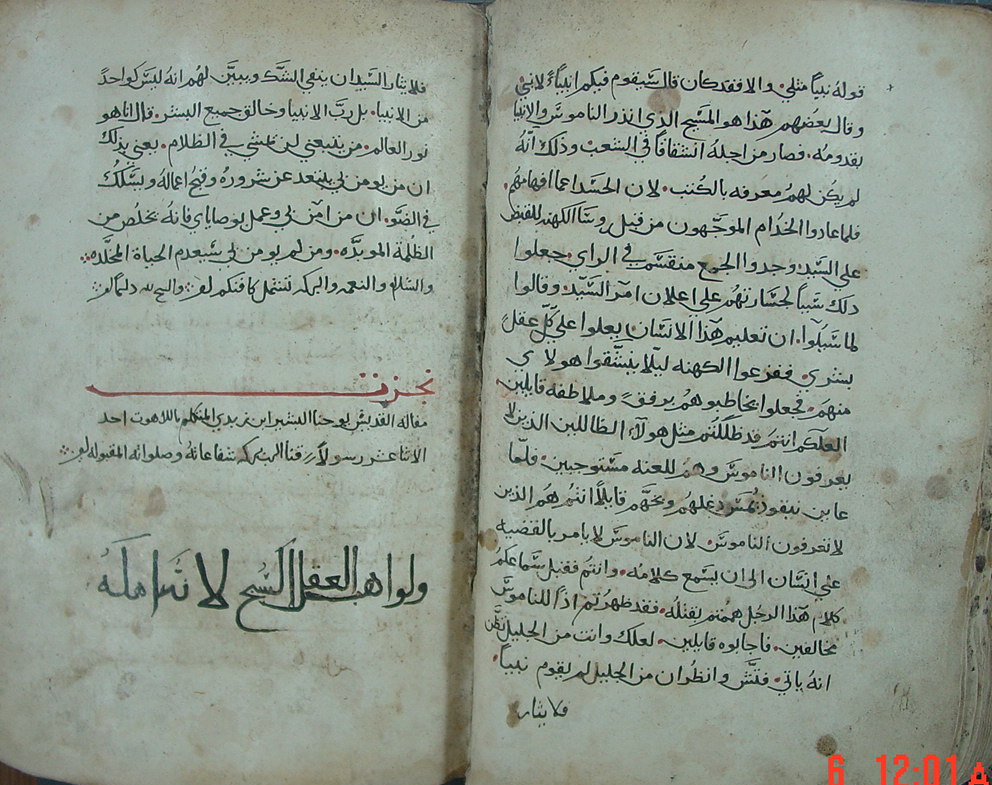 قوله نبياً مثلي. والا فقد كان قال سيقوم فيكم انبياء لانبي
وقال بعضهم هذا هو المسيح الذي انذر الناموس والانبيا
بقدومه. فصار من اجله انشقاقاً في الشعب وذلك انه
لم يكن لهم معرفه بالكتب. لان الحسد اعما افهامهم.
فلما عادوا الخدام الموجهون من قبل روسا الكهنه للقبض
على السيد وجدوا الجمع منقسم في الراي. جعلوا
ذلك سبباً لجسارتهم على اعلان امر السيد. وقالوا
لما سيلوا. ان تعليم هذا الانسان يعلوا على كل عقل
بشري. ففزعوا الكهنه ليلا ينشقوا هولاي
منهم. فجعلوا يخاطبوهم برفق وملاطفه قايلين
لعلكم انتم قد ظللتم مثل هولاء الظاللين الذين لا
يعرفون الناموس وهم للعنه مستوجبين. فلما
عاين نيقوذيمس دغلهم وبخهم قايلاً انتم هم الذين
لا تعرفون الناموس. لان الناموس لا يامر بالقضيه
على انسان الى ان يسمع كلامه. وانتم فقبل سماعكم
كلام هذا الرجل هممتم بقتله. فقد ظهرتم اذاً للناموس
مخالفين. فاجابوه قايلين. لعلك وانت من الجليل تظن
انه ياتي. فتش وانظر ان من الجليل لم يقوم نبياً.
فلايثار
فلايثار السيد ان ينفي الشك ويبين لهم انه ليس كواحداً
من الانبيا. بل رب الانبيا وخالق جميع البشر. قال انا هو
نور العالم. من يتبعني لن يمشي في الظلام. يعني بذلك
ان من يومن بي يبتعد عن شروره وقبح اعماله ويسلك
في الضو. ان من امن بي وعمل بوصاياي فانه يخلص من
الظلمة الموبده. ومن لم يومن بي سيعدم الحياة المخلده
والسلام والنعمه والبركه تشتمل كافتكم والسبح لله دايماً
نجزت
مقاله القديس يوحنا البشير ابن زبدي المتكلم باللاهوت احد
الاثناعشر رسولاً رزقنا الرب بركه شفاعاته وصلواته المقبوله
ولواهب العقل السبح لا تناهله